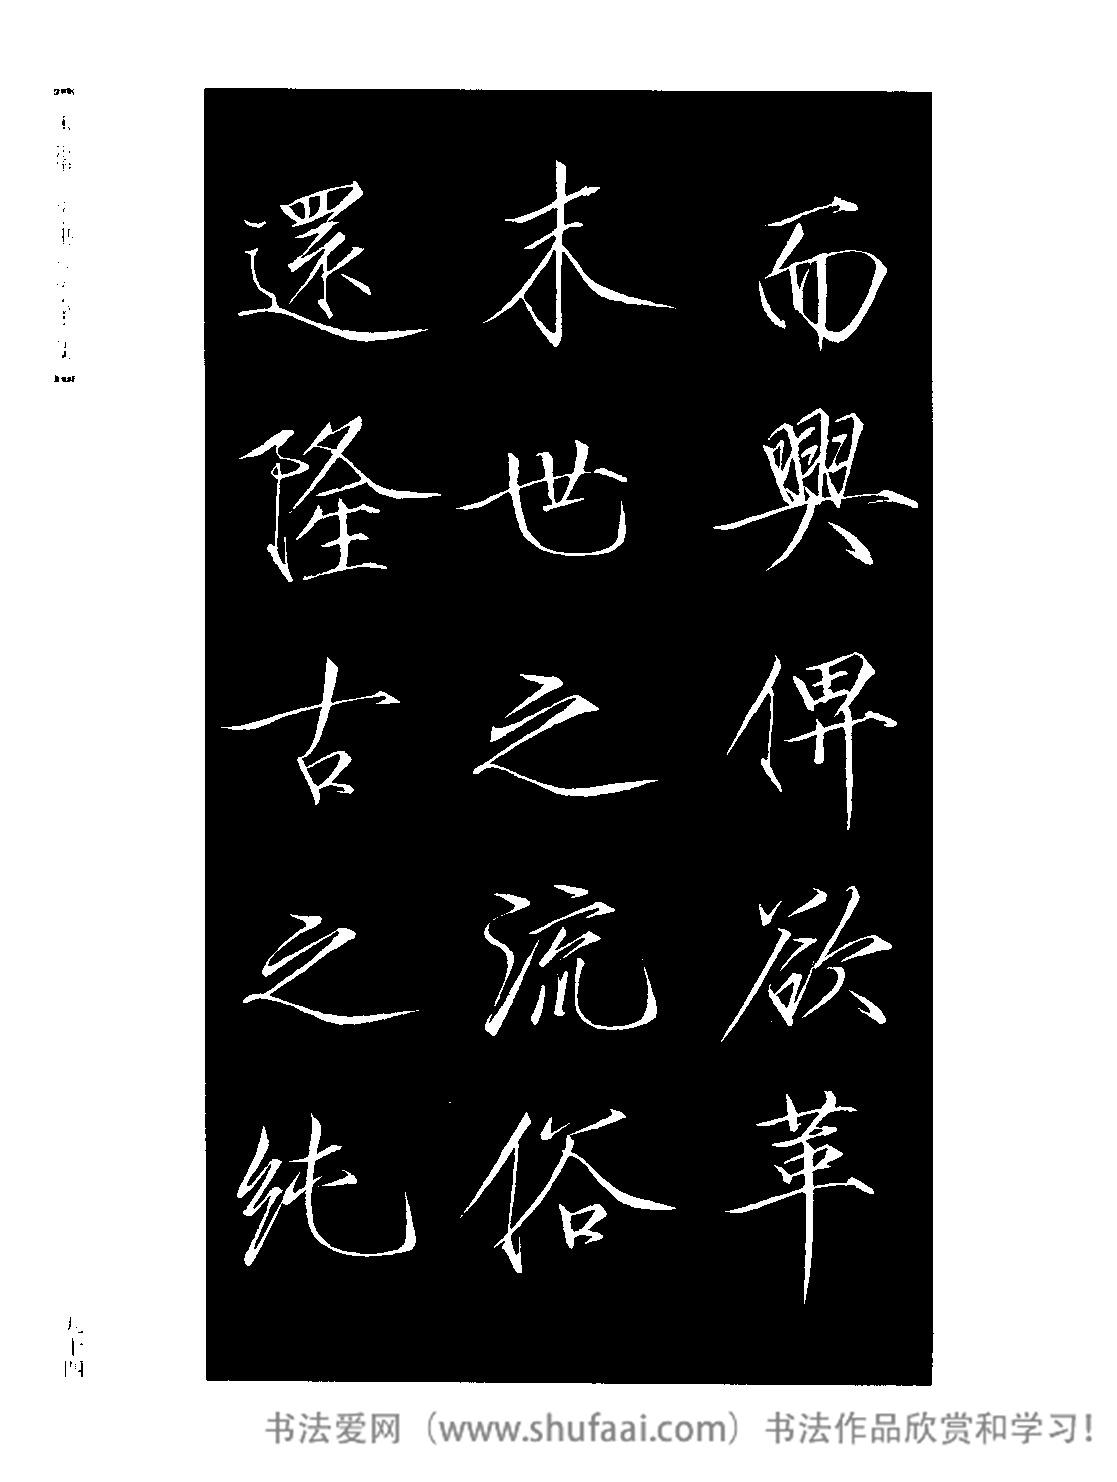 而興俾欲革
末世之流俗
還隆古之純
九十四
书法爱网（www.shufaai.com）书法作品欣赏和学习！